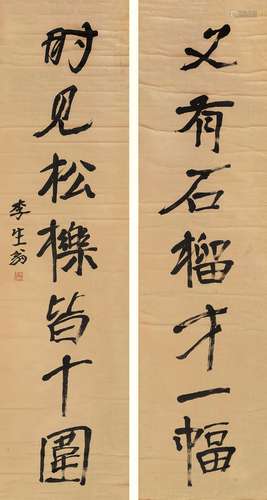 又有石榴才一幅
时见松櫟皆十圍
李生翁